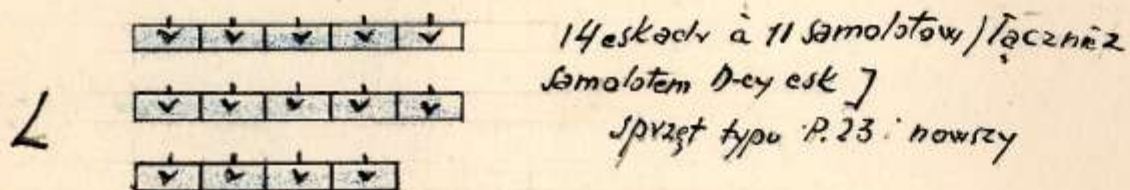 14 eskadr à 11 samolotów / łącznie z
L
samolotem D-cy esk ]
sprzęt typu P.23 i nowszy